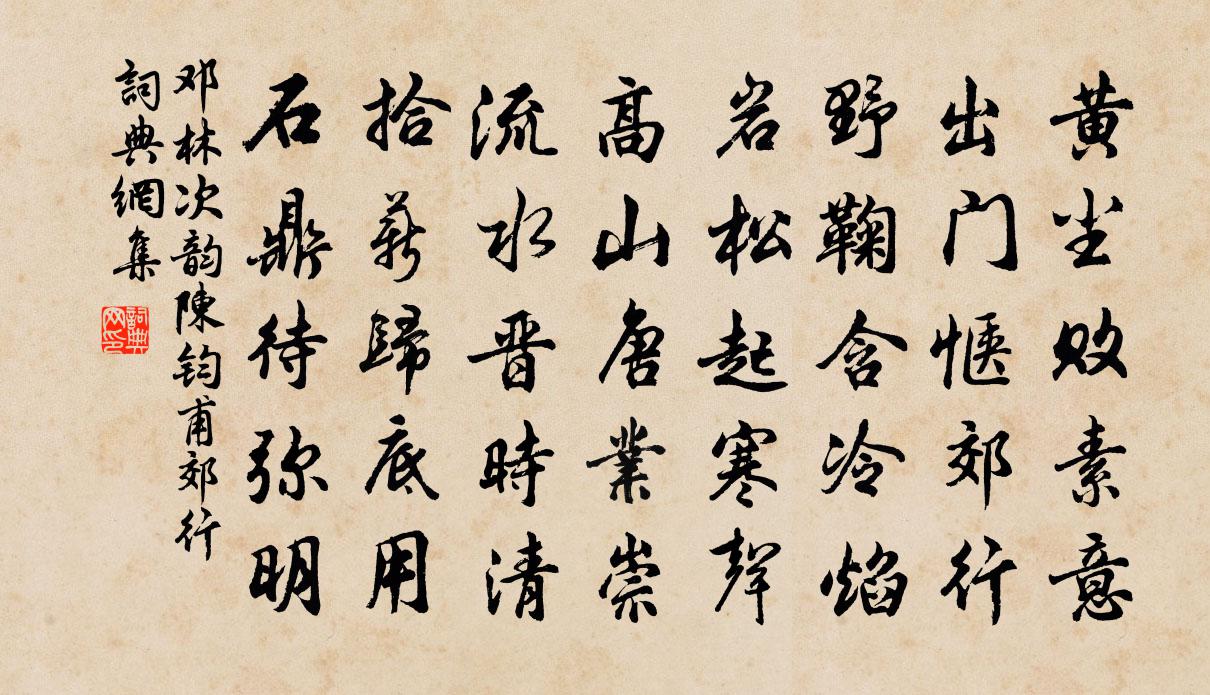 黄尘败素意
出门惬郊行
野鞠含冷焰
岩松起寒聲
高山唐業崇
流水晋時清
拾薪歸底用
石鼎待弥明
邓林次韵陳鈞甫郊行
詞典網集
詞典网印